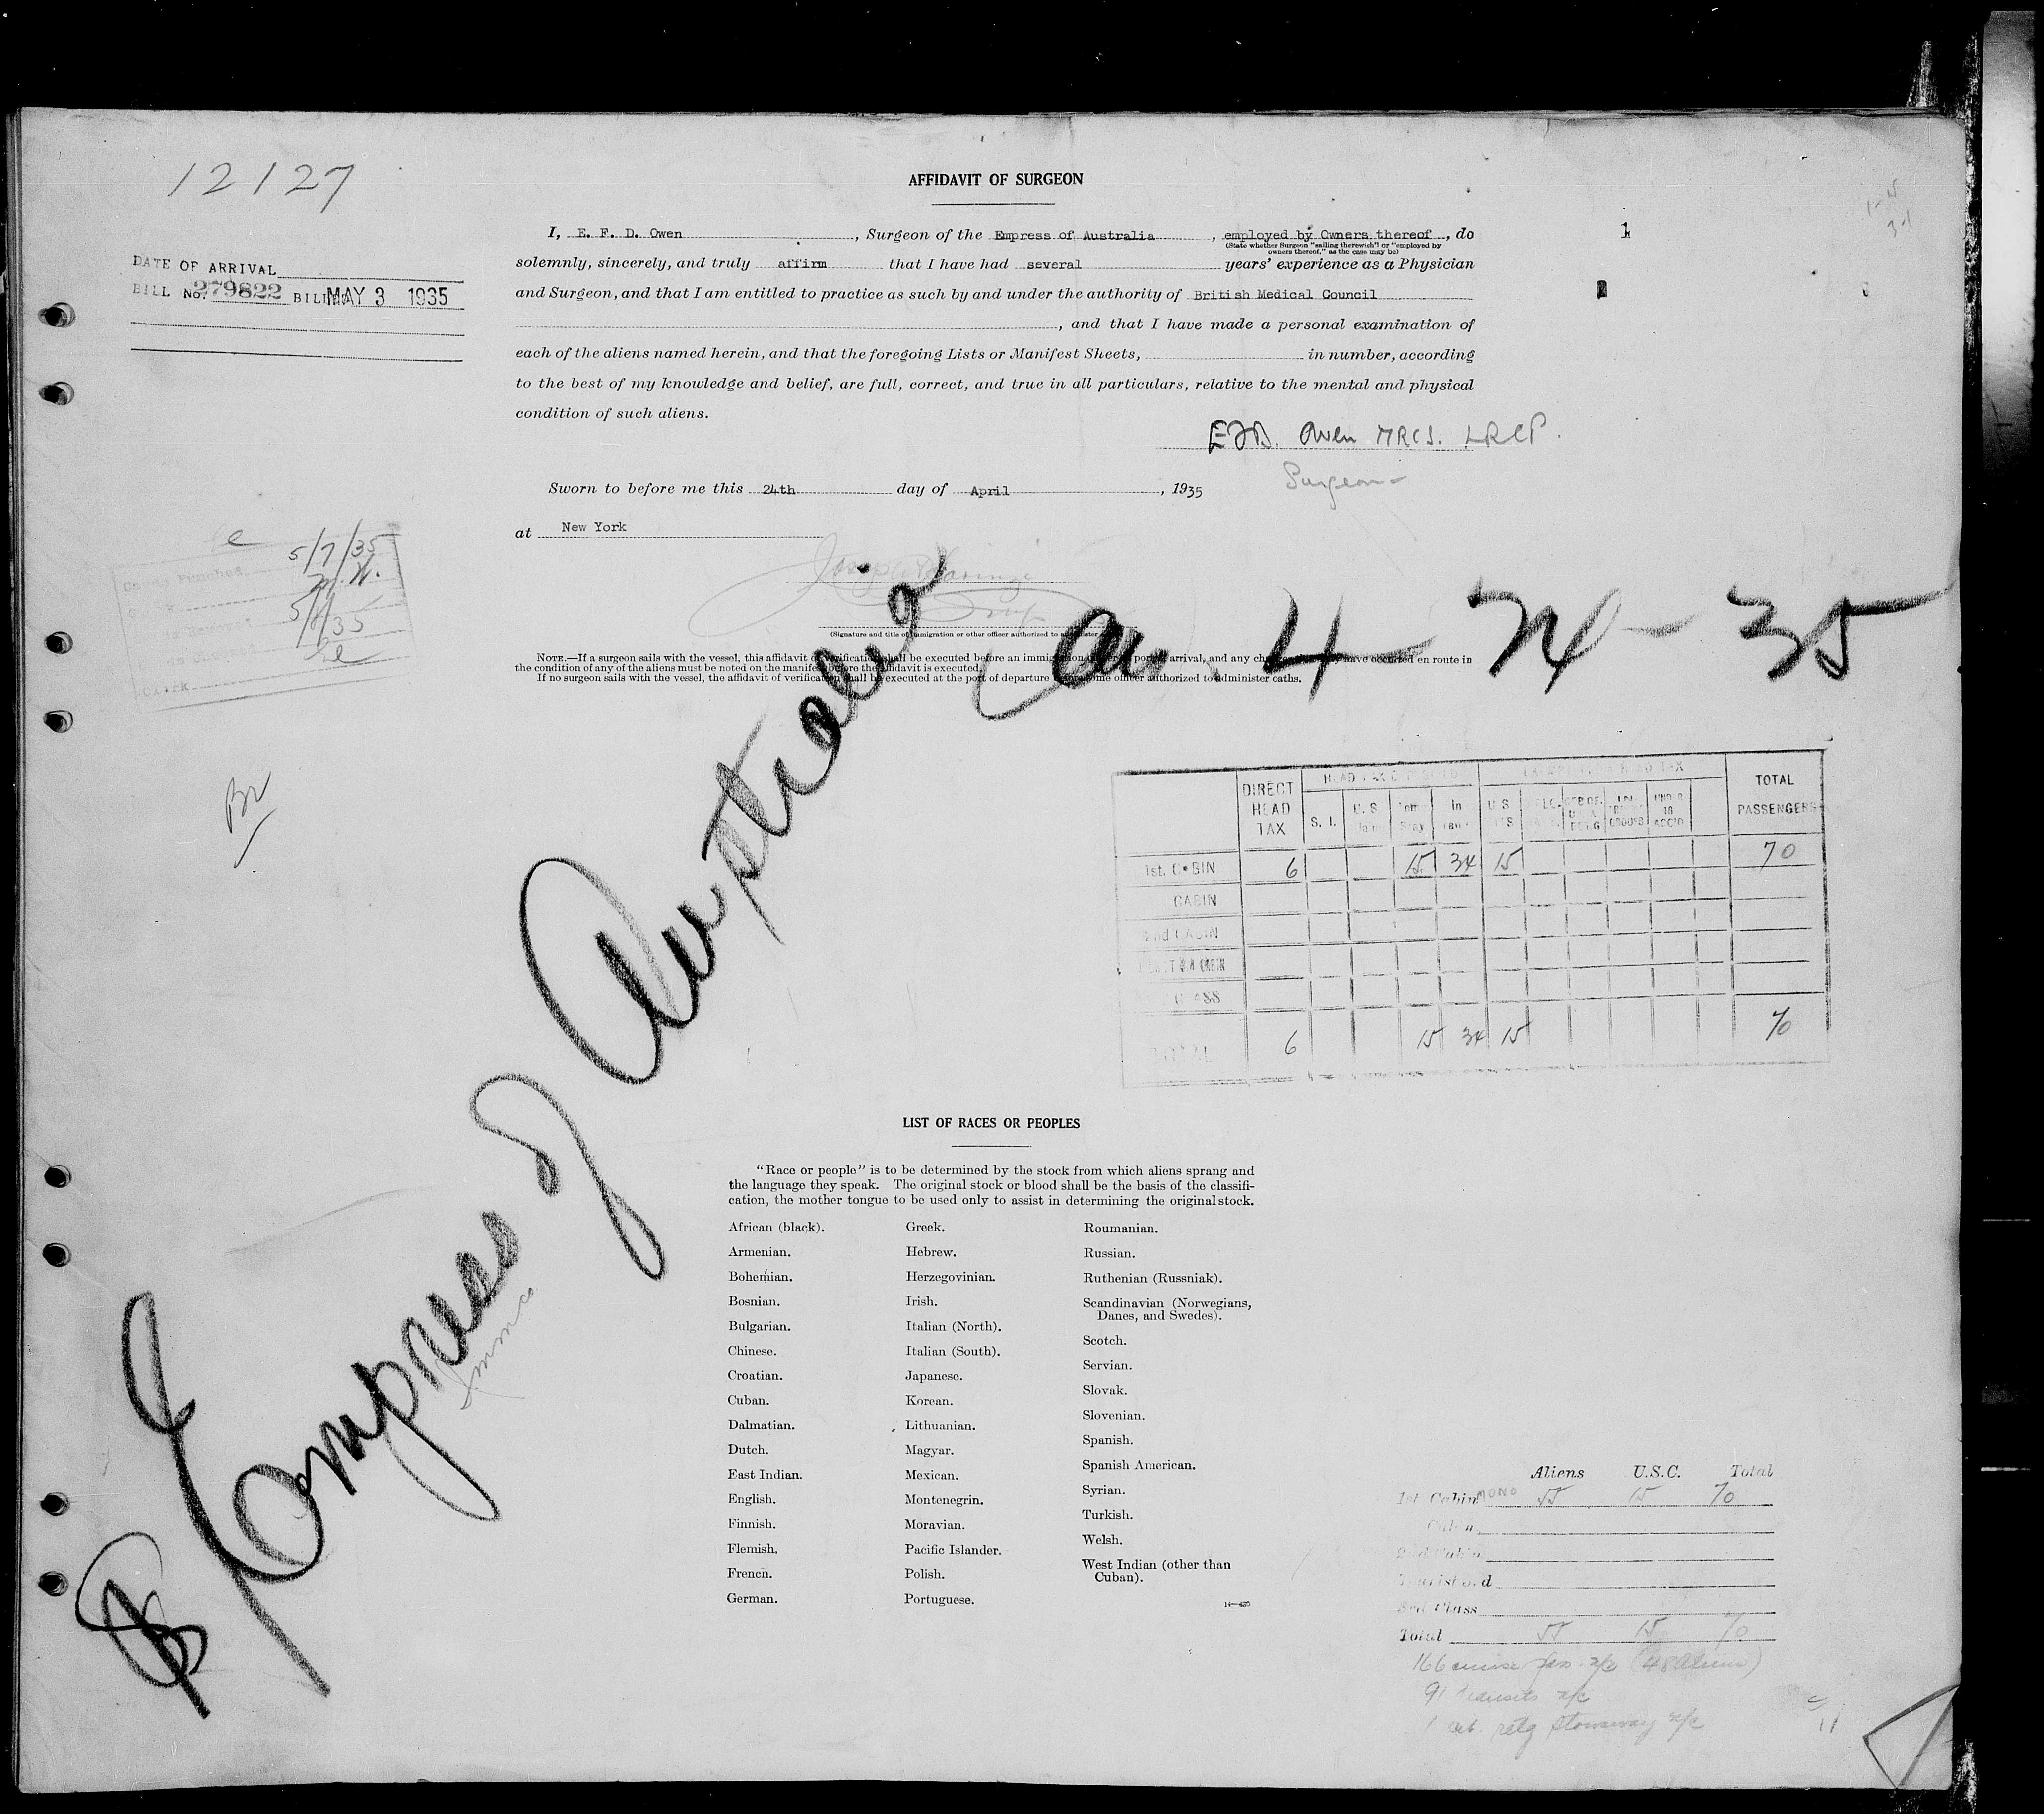 12127
AFFIDAVIT OF SURGEON
I, E. F. D. Owen, Surgeon of the Empress of Australia, employed by Owners thereof, do
1
(State whether Surgeon "sailing therewith" or "employed by
owners thereof," as the case may be)
solemnly, sincerely, and truly affirm that I have had several years' experience as a Physician
and Surgeon, and that I am entitled to practice as such by and under the authority of British Medical Council
, and that I have made a personal examination of
each of the aliens named herein, and that the foregoing Lists or Manifest Sheets, in number, according
to the best of my knowledge and belief, are full, correct, and true in all particulars, relative to the mental and physical
condition of such aliens.
DATE OF ARRIVAL
BILL No. 279822 MAY 3 1935
Owen MRCS. LRCP.
Surgeon
Sworn to before me this 24th day of April, 1935
at New York
5/7/35
(Signature and title of immigration or other officer authorized to administer
NOTE.—If a surgeon sails with the vessel, this affidavit of verification shall be executed before an immigration port of arrival, and any have occurred en route in
the condition of any of the aliens must be noted on the manifest before the affidavit is executed.
If no surgeon sails with the vessel, the affidavit of verification shall be executed at the port of departure some officer authorized to administer oaths.
4-24-35
Empress of Australia
Br
DIRECT HEAD TAX
S. I.
U. S.
TOTAL PASSENGERS
1st. CABIN 6 15 34 15 70
CABIN
2nd CABIN
CLASS
TOTAL 6 15 34 15 70
LIST OF RACES OR PEOPLES
"Race or people" is to be determined by the stock from which aliens sprang and
the language they speak. The original stock or blood shall be the basis of the classifi-
cation, the mother tongue to be used only to assist in determining the original stock.
African (black).
Armenian.
Bohemian.
Bosnian.
Bulgarian.
Chinese.
Croatian.
Cuban.
Dalmatian.
Dutch.
East Indian.
English.
Finnish.
Flemish.
French.
German.
Greek.
Hebrew.
Herzegovinian.
Irish.
Italian (North).
Italian (South).
Japanese.
Korean.
Lithuanian.
Magyar.
Mexican.
Montenegrin.
Moravian.
Pacific Islander.
Polish.
Portuguese.
Roumanian.
Russian.
Ruthenian (Russniak).
Scandinavian (Norwegians,
Danes, and Swedes).
Scotch.
Servian.
Slovak.
Slovenian.
Spanish.
Spanish American.
Syrian.
Turkish.
Welsh.
West Indian (other than
Cuban).
Aliens U.S.C. Total
1st Cabin MONO 55 15 70
Cabin
2nd Cabin
Tourist 3rd
3rd Class
Total 55 15 70
166 cruise (48 Aliens)
91 transits
1 stowaway